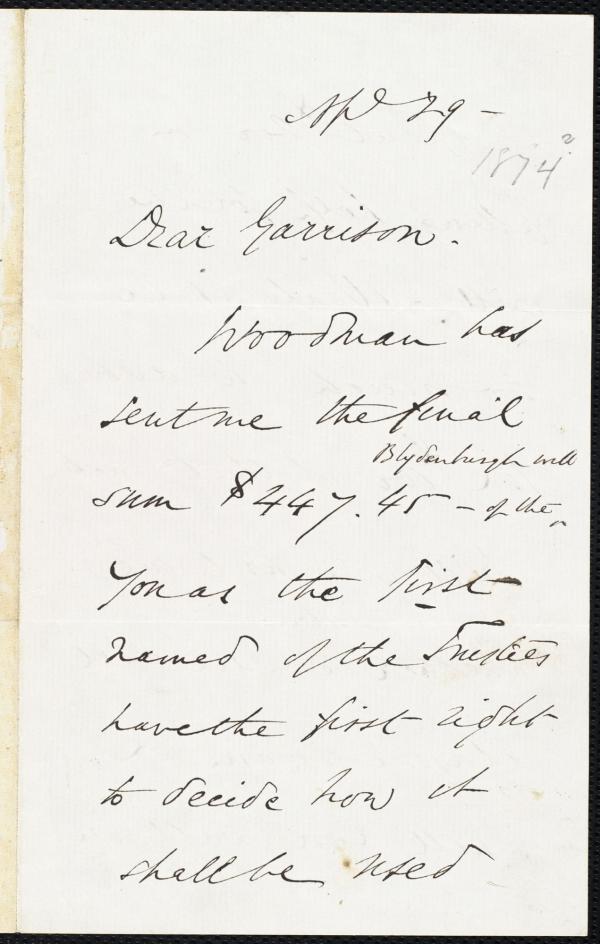 Apl 29 —
1874?
Dear Garrison.
Woodman has
sent me the final
Blydenburgh will
sum $447.45 — of the ^
You as the first
named of the Trustees
have the first right
to decide how it
shall be used